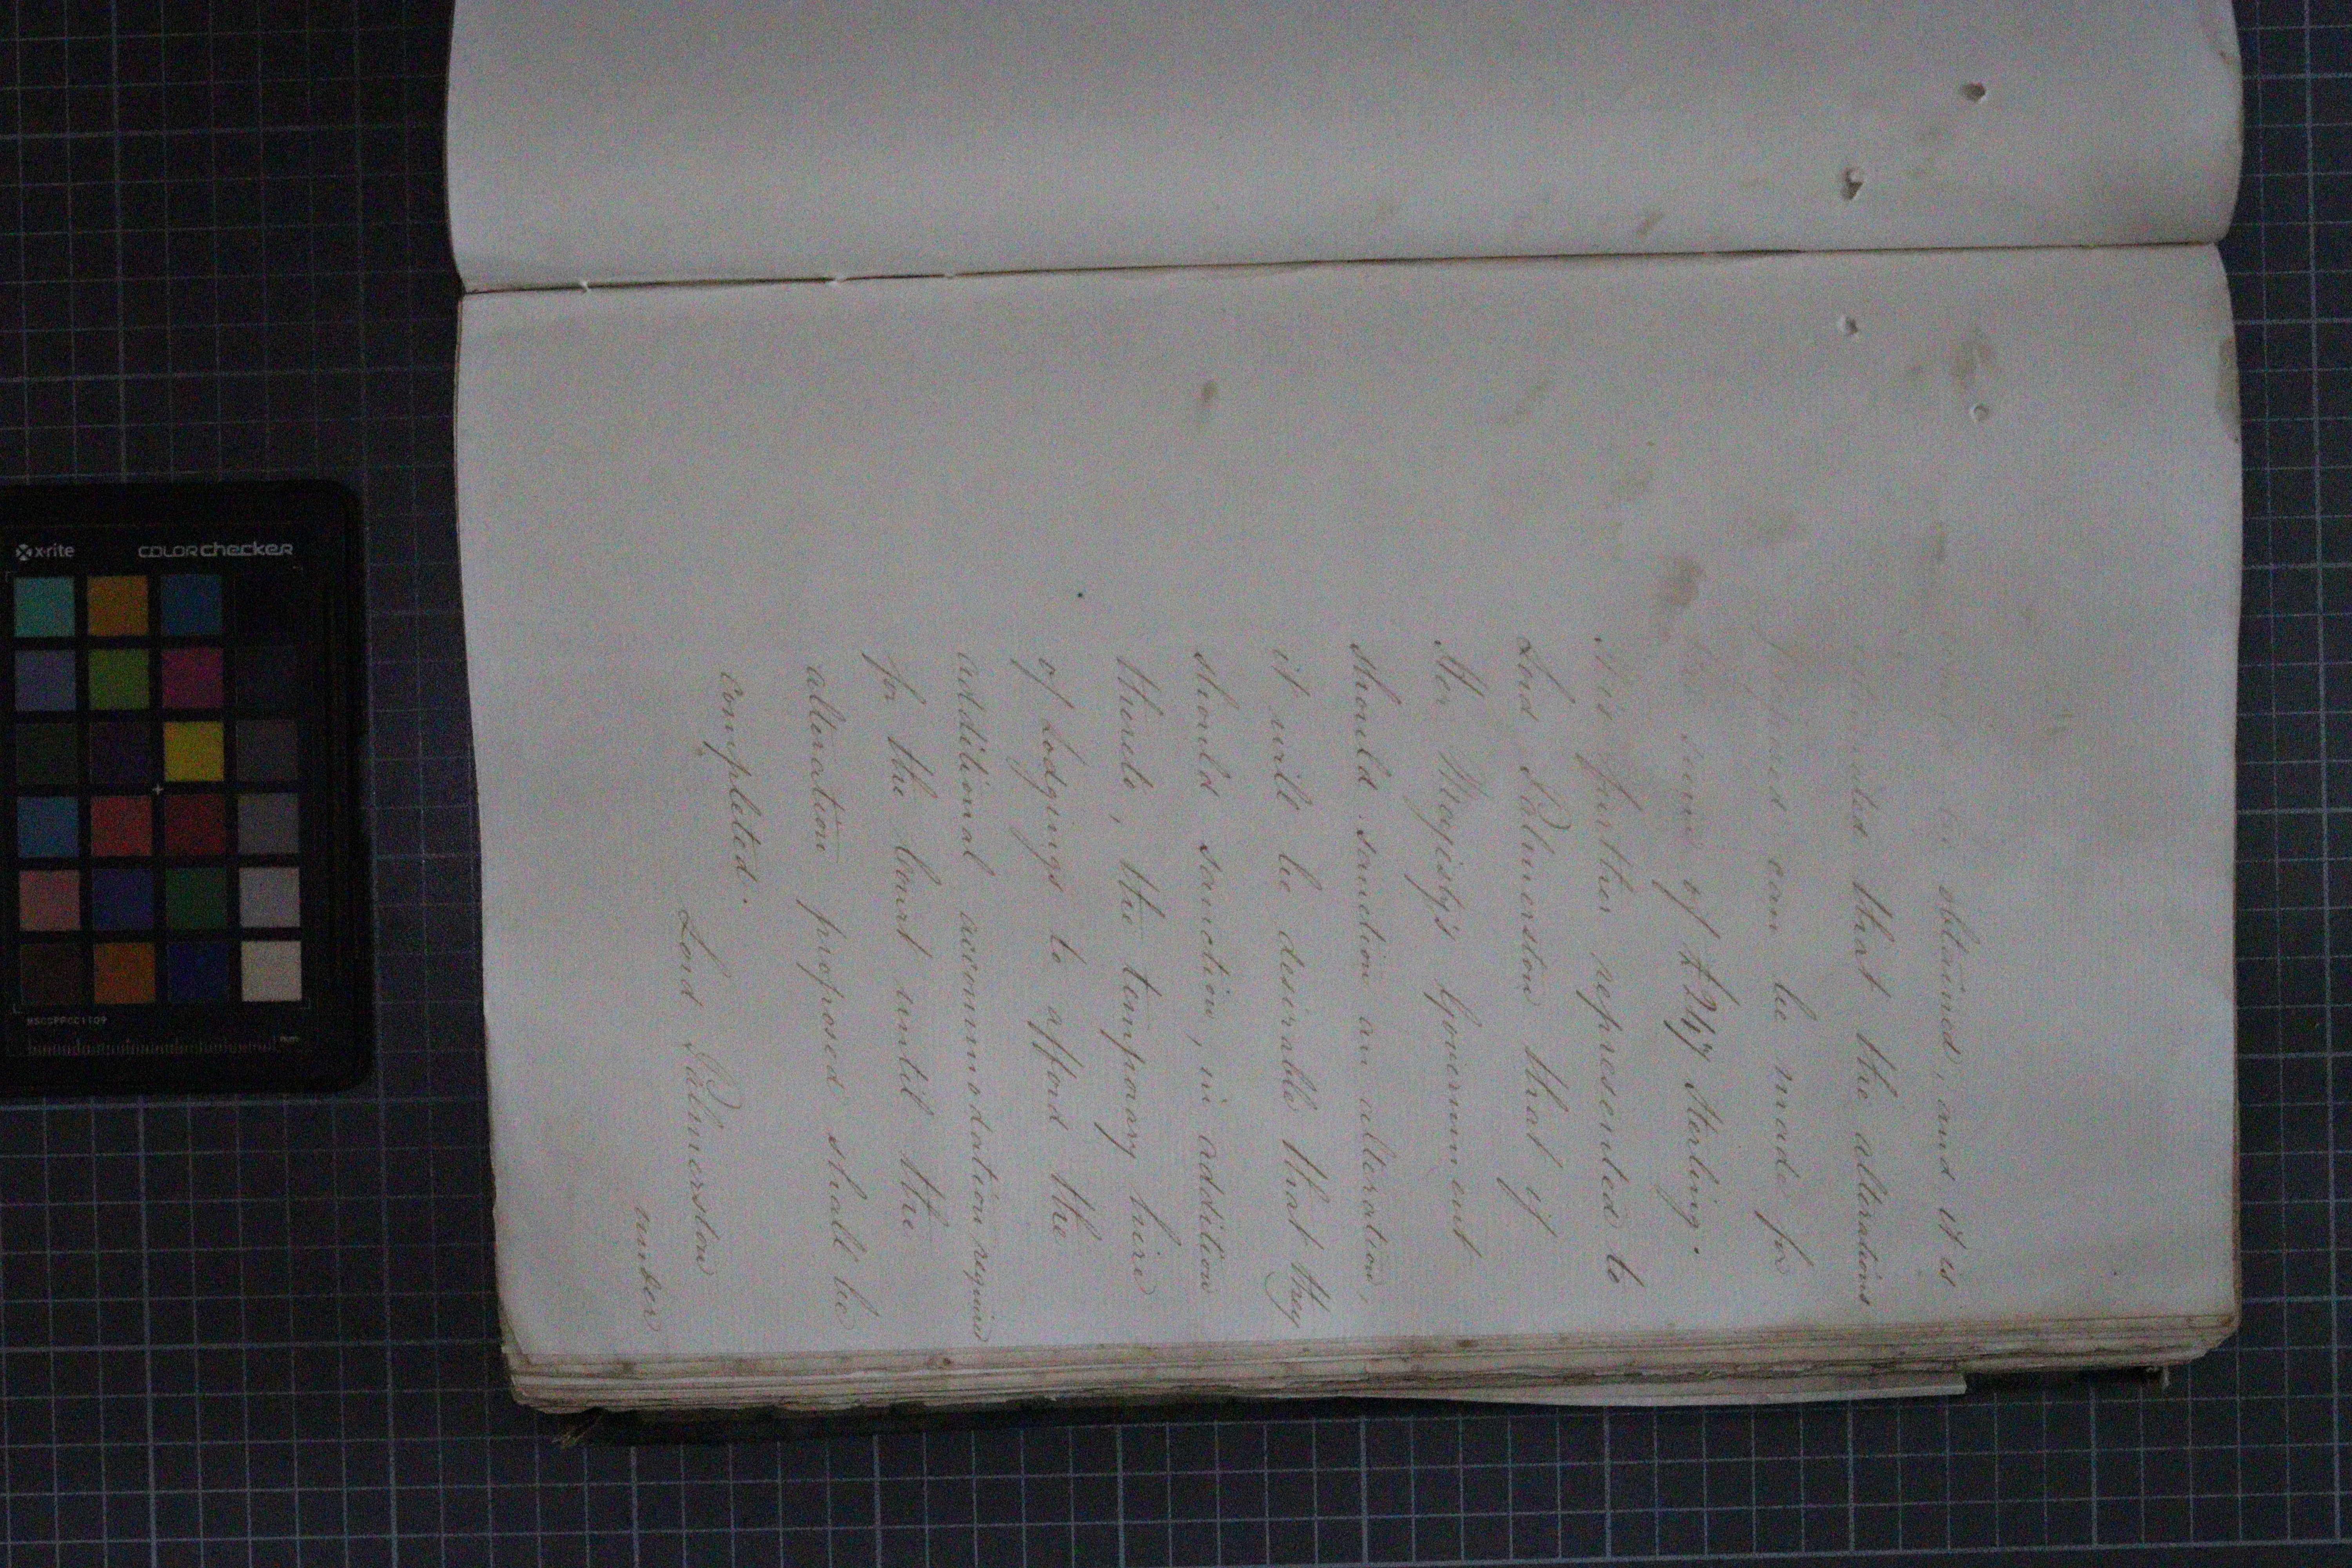 be obtained, and it is
that the alterations
proposed can be made for
the sum of £247 Sterling.
It is further represented to
Lord Palmerston that if
Her Majesty's Government
should sanction an alteration,
it will be desirable that they
should sanction, in addition
thereto, the temporary hire
of Lodgings to afford the
additional accommodation required
for the Court until the
alteration proposed shall be
completed.
Lord Palmerston
under
x-rite
colorchecker
MSCCPPCC1109
mm